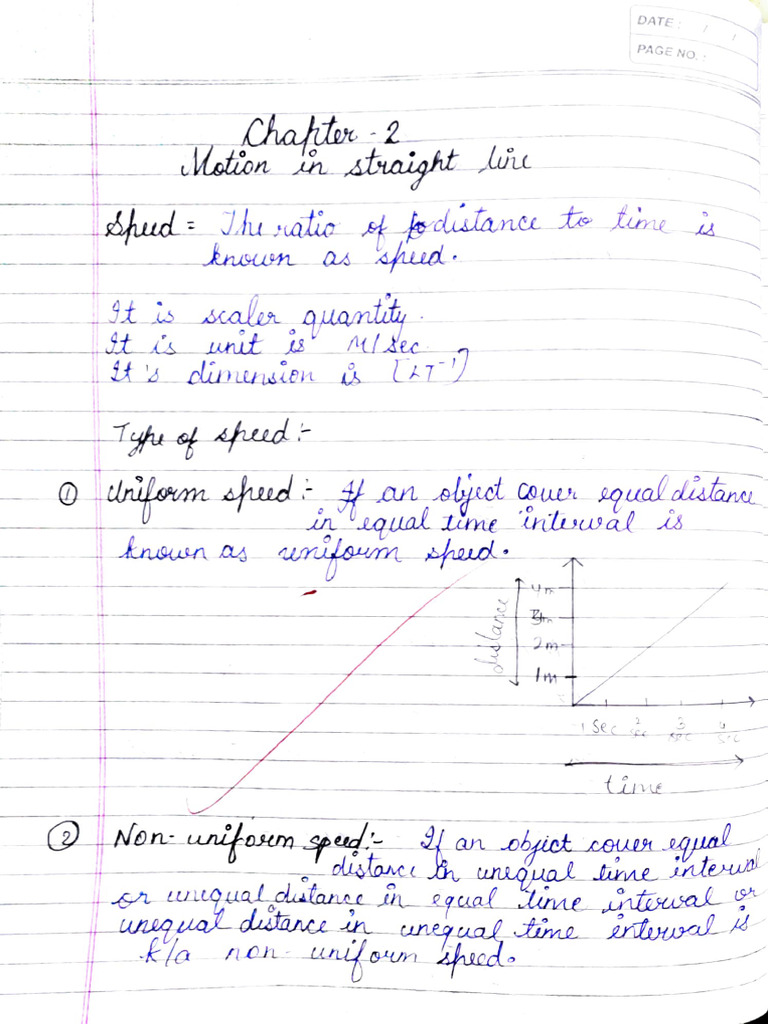 DATE: / /
PAGE NO.:
Chapter - 2
Motion in straight line
Speed = The ratio of distance to time is
known as speed.
It is scaler quantity.
It is unit is M/sec
It's dimension is [LT⁻¹]
Type of speed:-
① Uniform speed:- If an object cover equal distance
in equal time interval is
known as uniform speed.
distance
4m
3m
2m
1m
1 sec 2 sec 3 sec 4 sec
time
② Non-uniform speed:- If an object cover equal
distance in unequal time interval
or unequal distance in equal time interval or
unequal distance in unequal time interval is
k/a non-uniform speed.